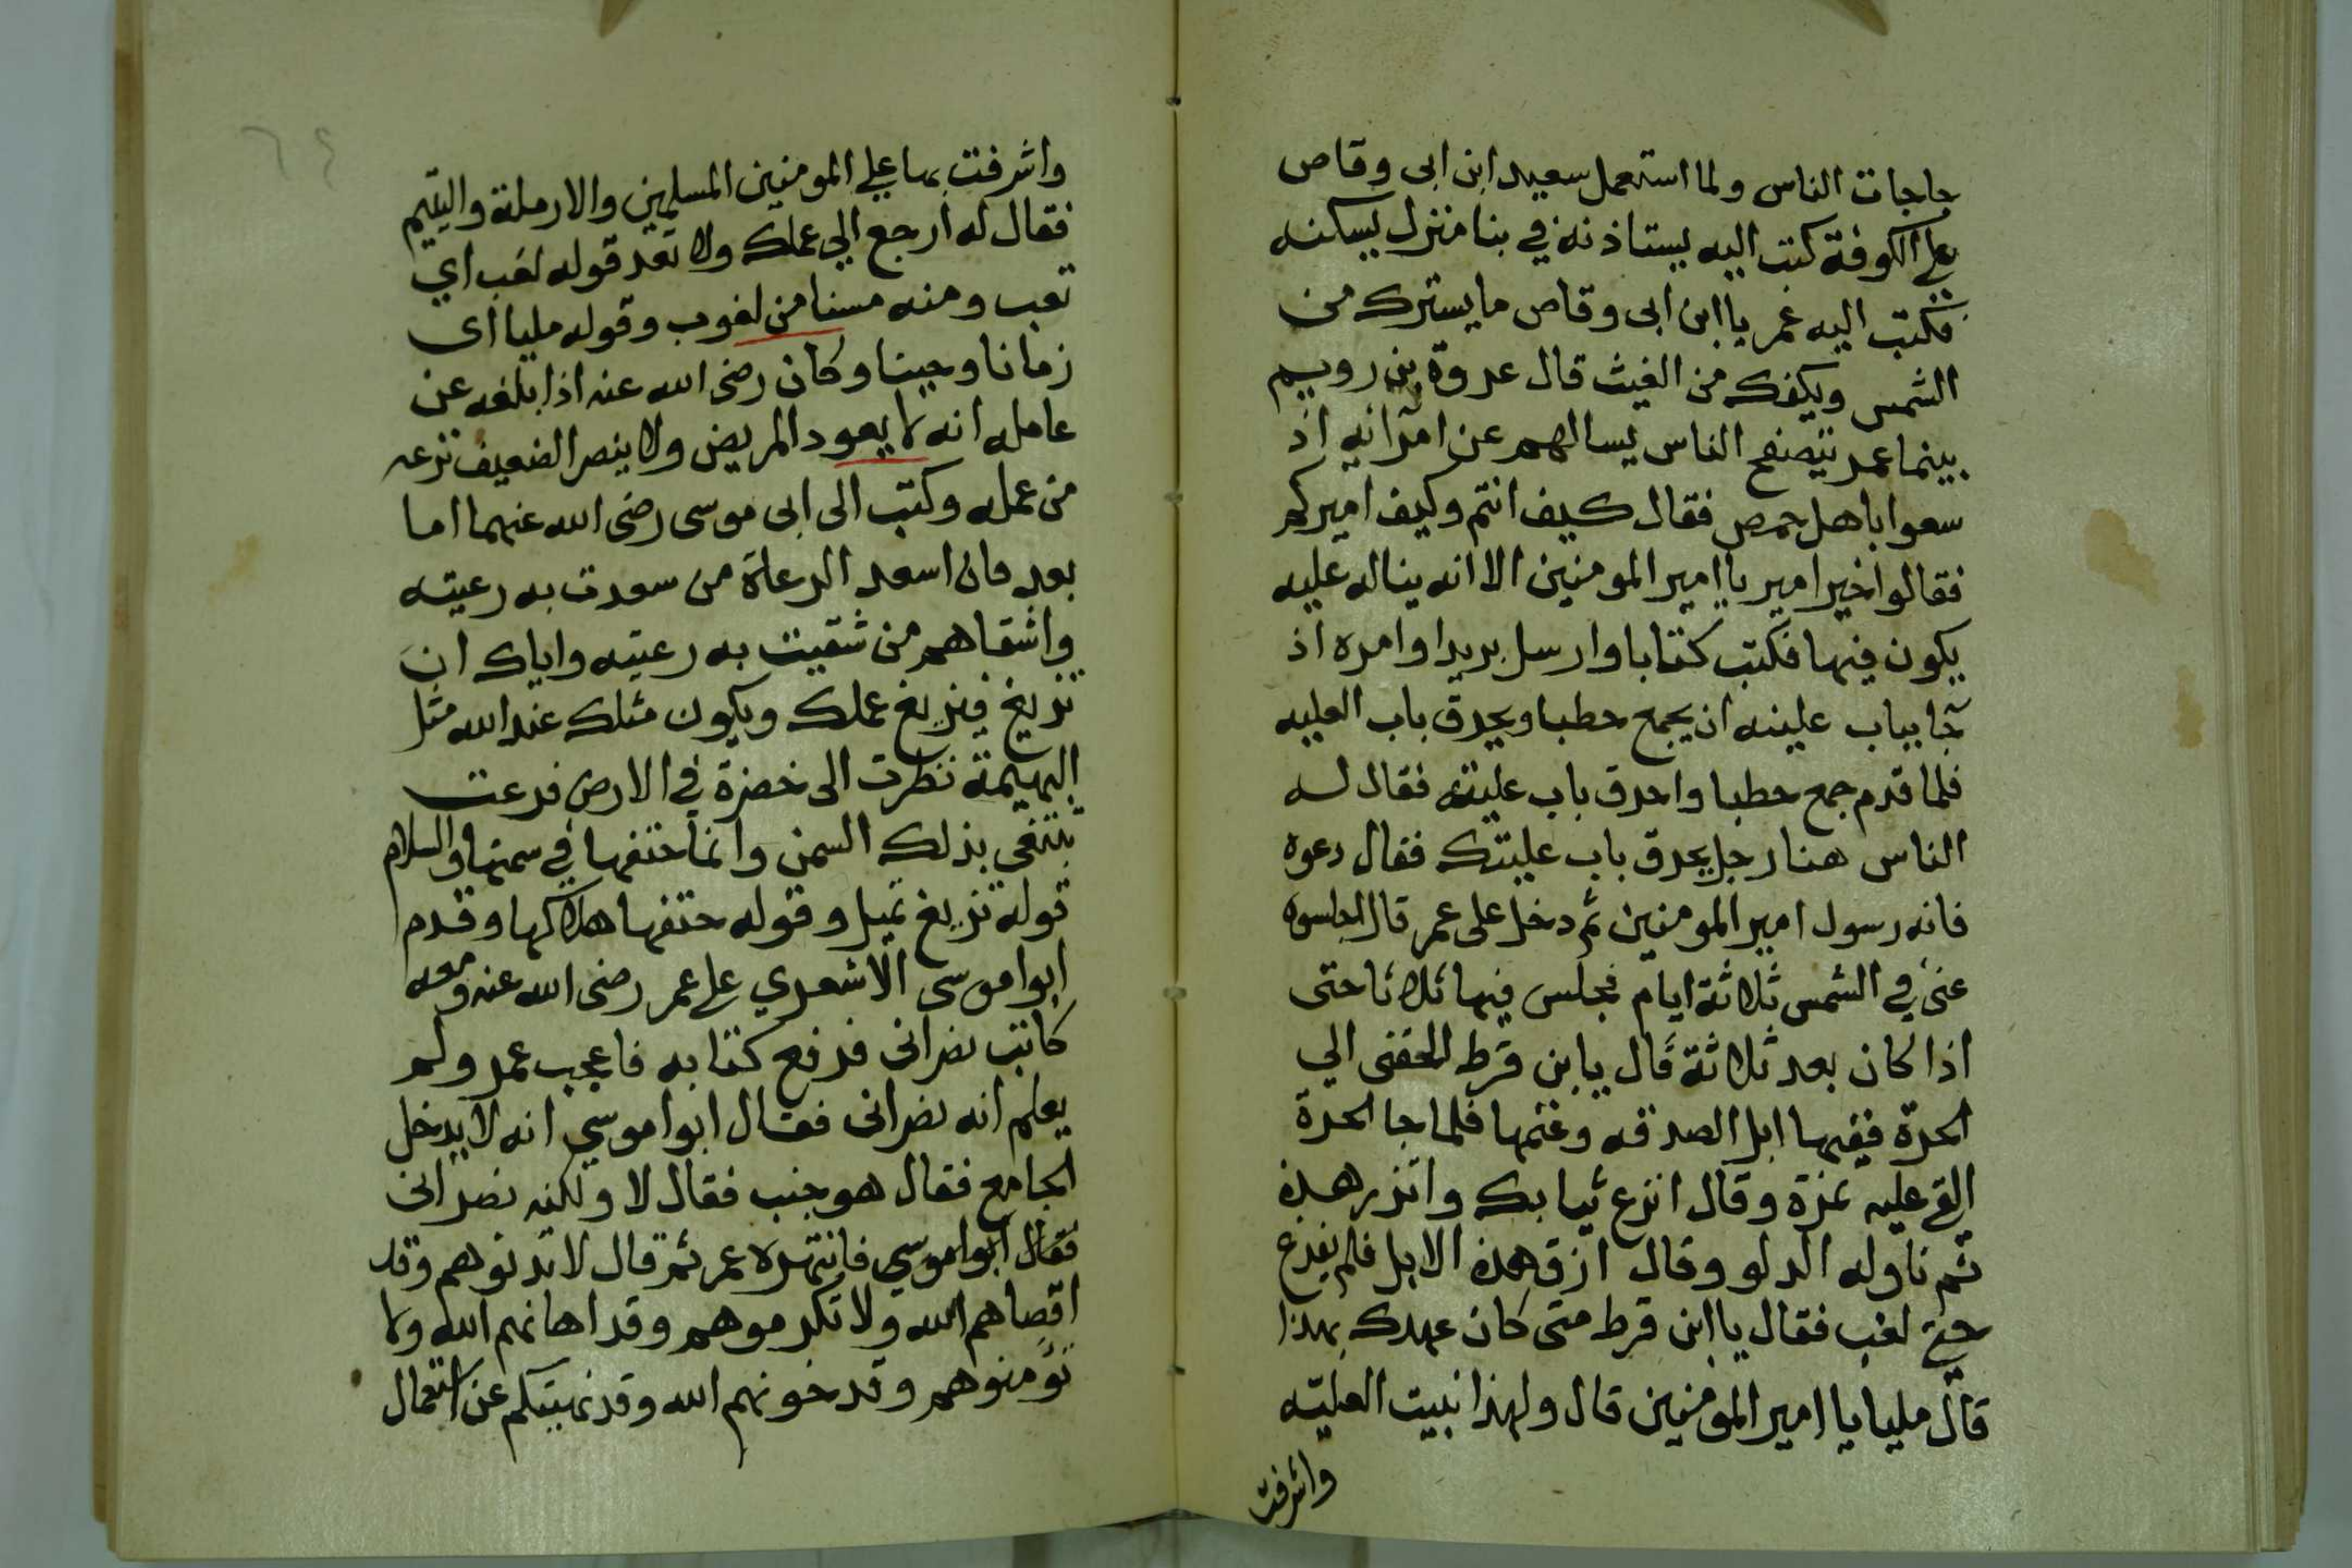 حاجات الناس ولما استعمل سعيد ابن ابى وقاص
على الكوفة كتب اليه يستاذنه في بنا منزل يسكنه
فكتب اليه عمر يا ابن ابى وقاص ما يسترك من
الشمس ويكفك من الغيث قال عروة بن رويم
بينما عمر يتصفح الناس يسالهم عن امرائهم اذ
سعوا باهل حمص فقال كيف انتم وكيف اميركم
فقالوا خير امير يا امير المومنين الا انه بنا له عليه
يكون فيها فكتب كتابا وارسل بريدا وامره اذ
جا بباب علينه ان يجمع حطبا ويحرق باب العليه
فلما قدم جمع حطبا واحرق باب عليته فقال له
الناس هنا رجل يحرق باب عليتك فقال دعوه
فانه رسول امير المومنين ثم دخل على عمر قال اجلسوه
عنى في الشمس ثلاثة ايام فجلس فيها ثلاثا حتى
اذا كان بعد ثلاثة قال يا بن قرط الحقنى الي
الحرة ففيها ابل الصدقه وغنمها فلما جا الحرة
القى عليه نمرة وقال انزع ثيابك واتزر هذه
ثم ناوله الدلو وقال ازق هذه الابل فلم يفرغ
حتى لغب فقال يا ابن قرط متى كان عهدك بهذا
قال مليا يا امير المومنين قال ولهذا بنيت العليه
واشرفت
٦٤
واشرفت بها على المومنين المسلمين والارملة واليتيم
فقال له ارجع الي عملك ولا تعد قوله لغب اي
تعب ومنه مسنا من لغوب وقوله مليا اى
زمانا وحينا وكان رضى الله عنه اذا بلغه عن
عامله انه لا يعود المريض ولا ينصر الضعيف نزعه
من عمله وكتب الى ابى موسى رضى الله عنهما اما
بعد فان اسعد الرعاة من سعدت به رعيته
واشقاهم من شقيت به رعيته واياك ان
تزيغ فيزيغ عملك ويكون مثلك عند الله مثل
البهيمة نظرت الى خضرة في الارض فرعت
تبتغى بذلك السمن وانما حتفها في سمنها والسلام
قوله تزيغ تميل وقوله حتفها هلاكها وقدم
ابوا موسى الاشعري على عمر رضى الله عنه ومعه
كاتب نصرانى فرفع كتابه فاعجب عمر ولم
يعلم انه نصرانى فقال ابوا موسي انه لا يدخل
الجامع فقال هو جنب فقال لا ولكنه نصرانى
فقال ابوا موسي فانتهره عمر ثم قال لا تدنوهم وقد
اقصاهم الله ولا تكرموهم وقد اهانهم الله ولا
تؤمنوهم وقد خونهم الله وقد نهيتكم عن استعمال